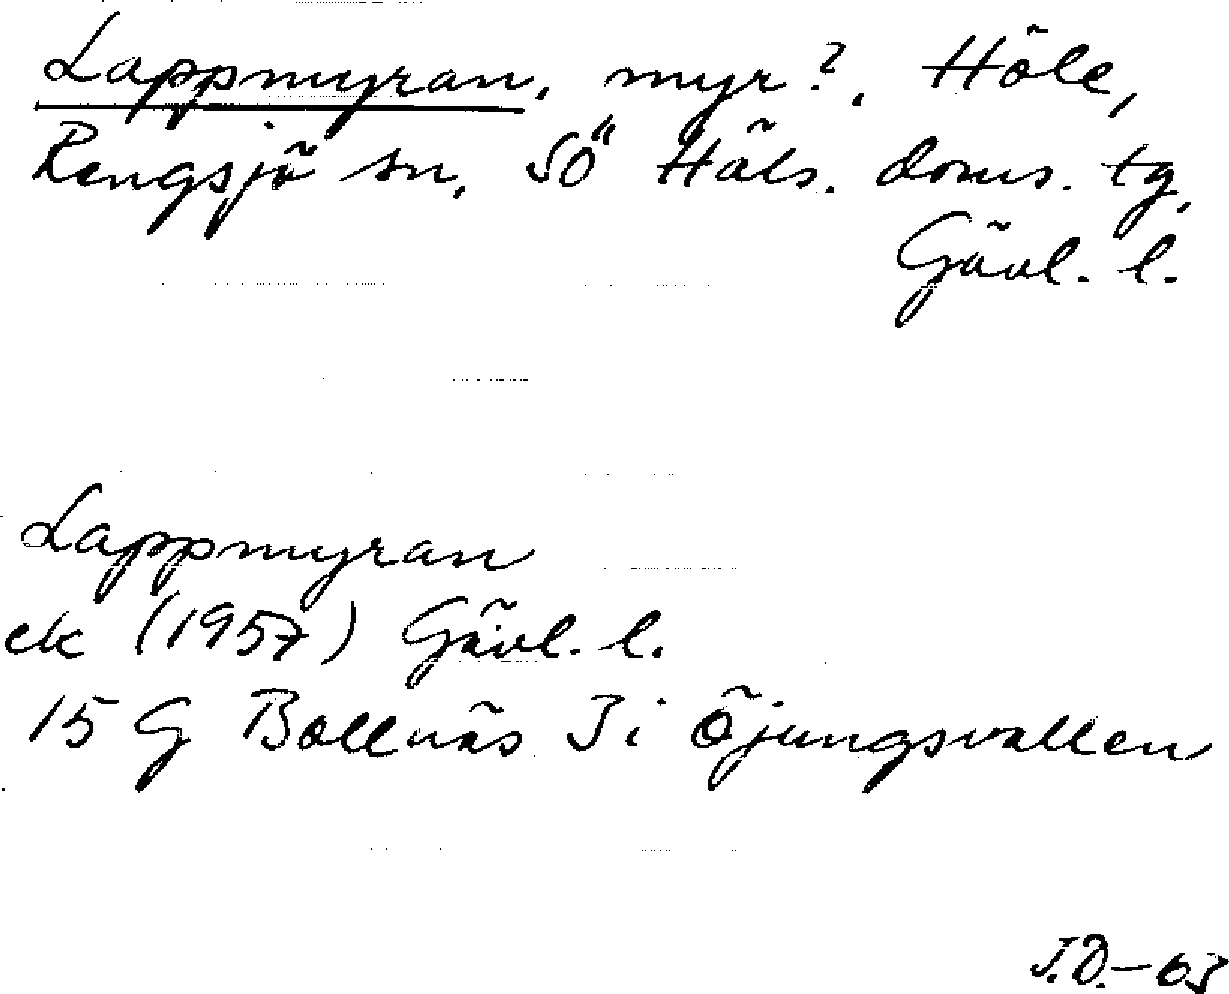 Lappmyran, myr?, Höle,
Rengsjö sn, SÖ Häls. doms. tg,
Gävl. l.
Lappmyran
ek (1957) Gävl. l.
15 G Bollnäs 3i Öjungsvallen
J.Ö.-63